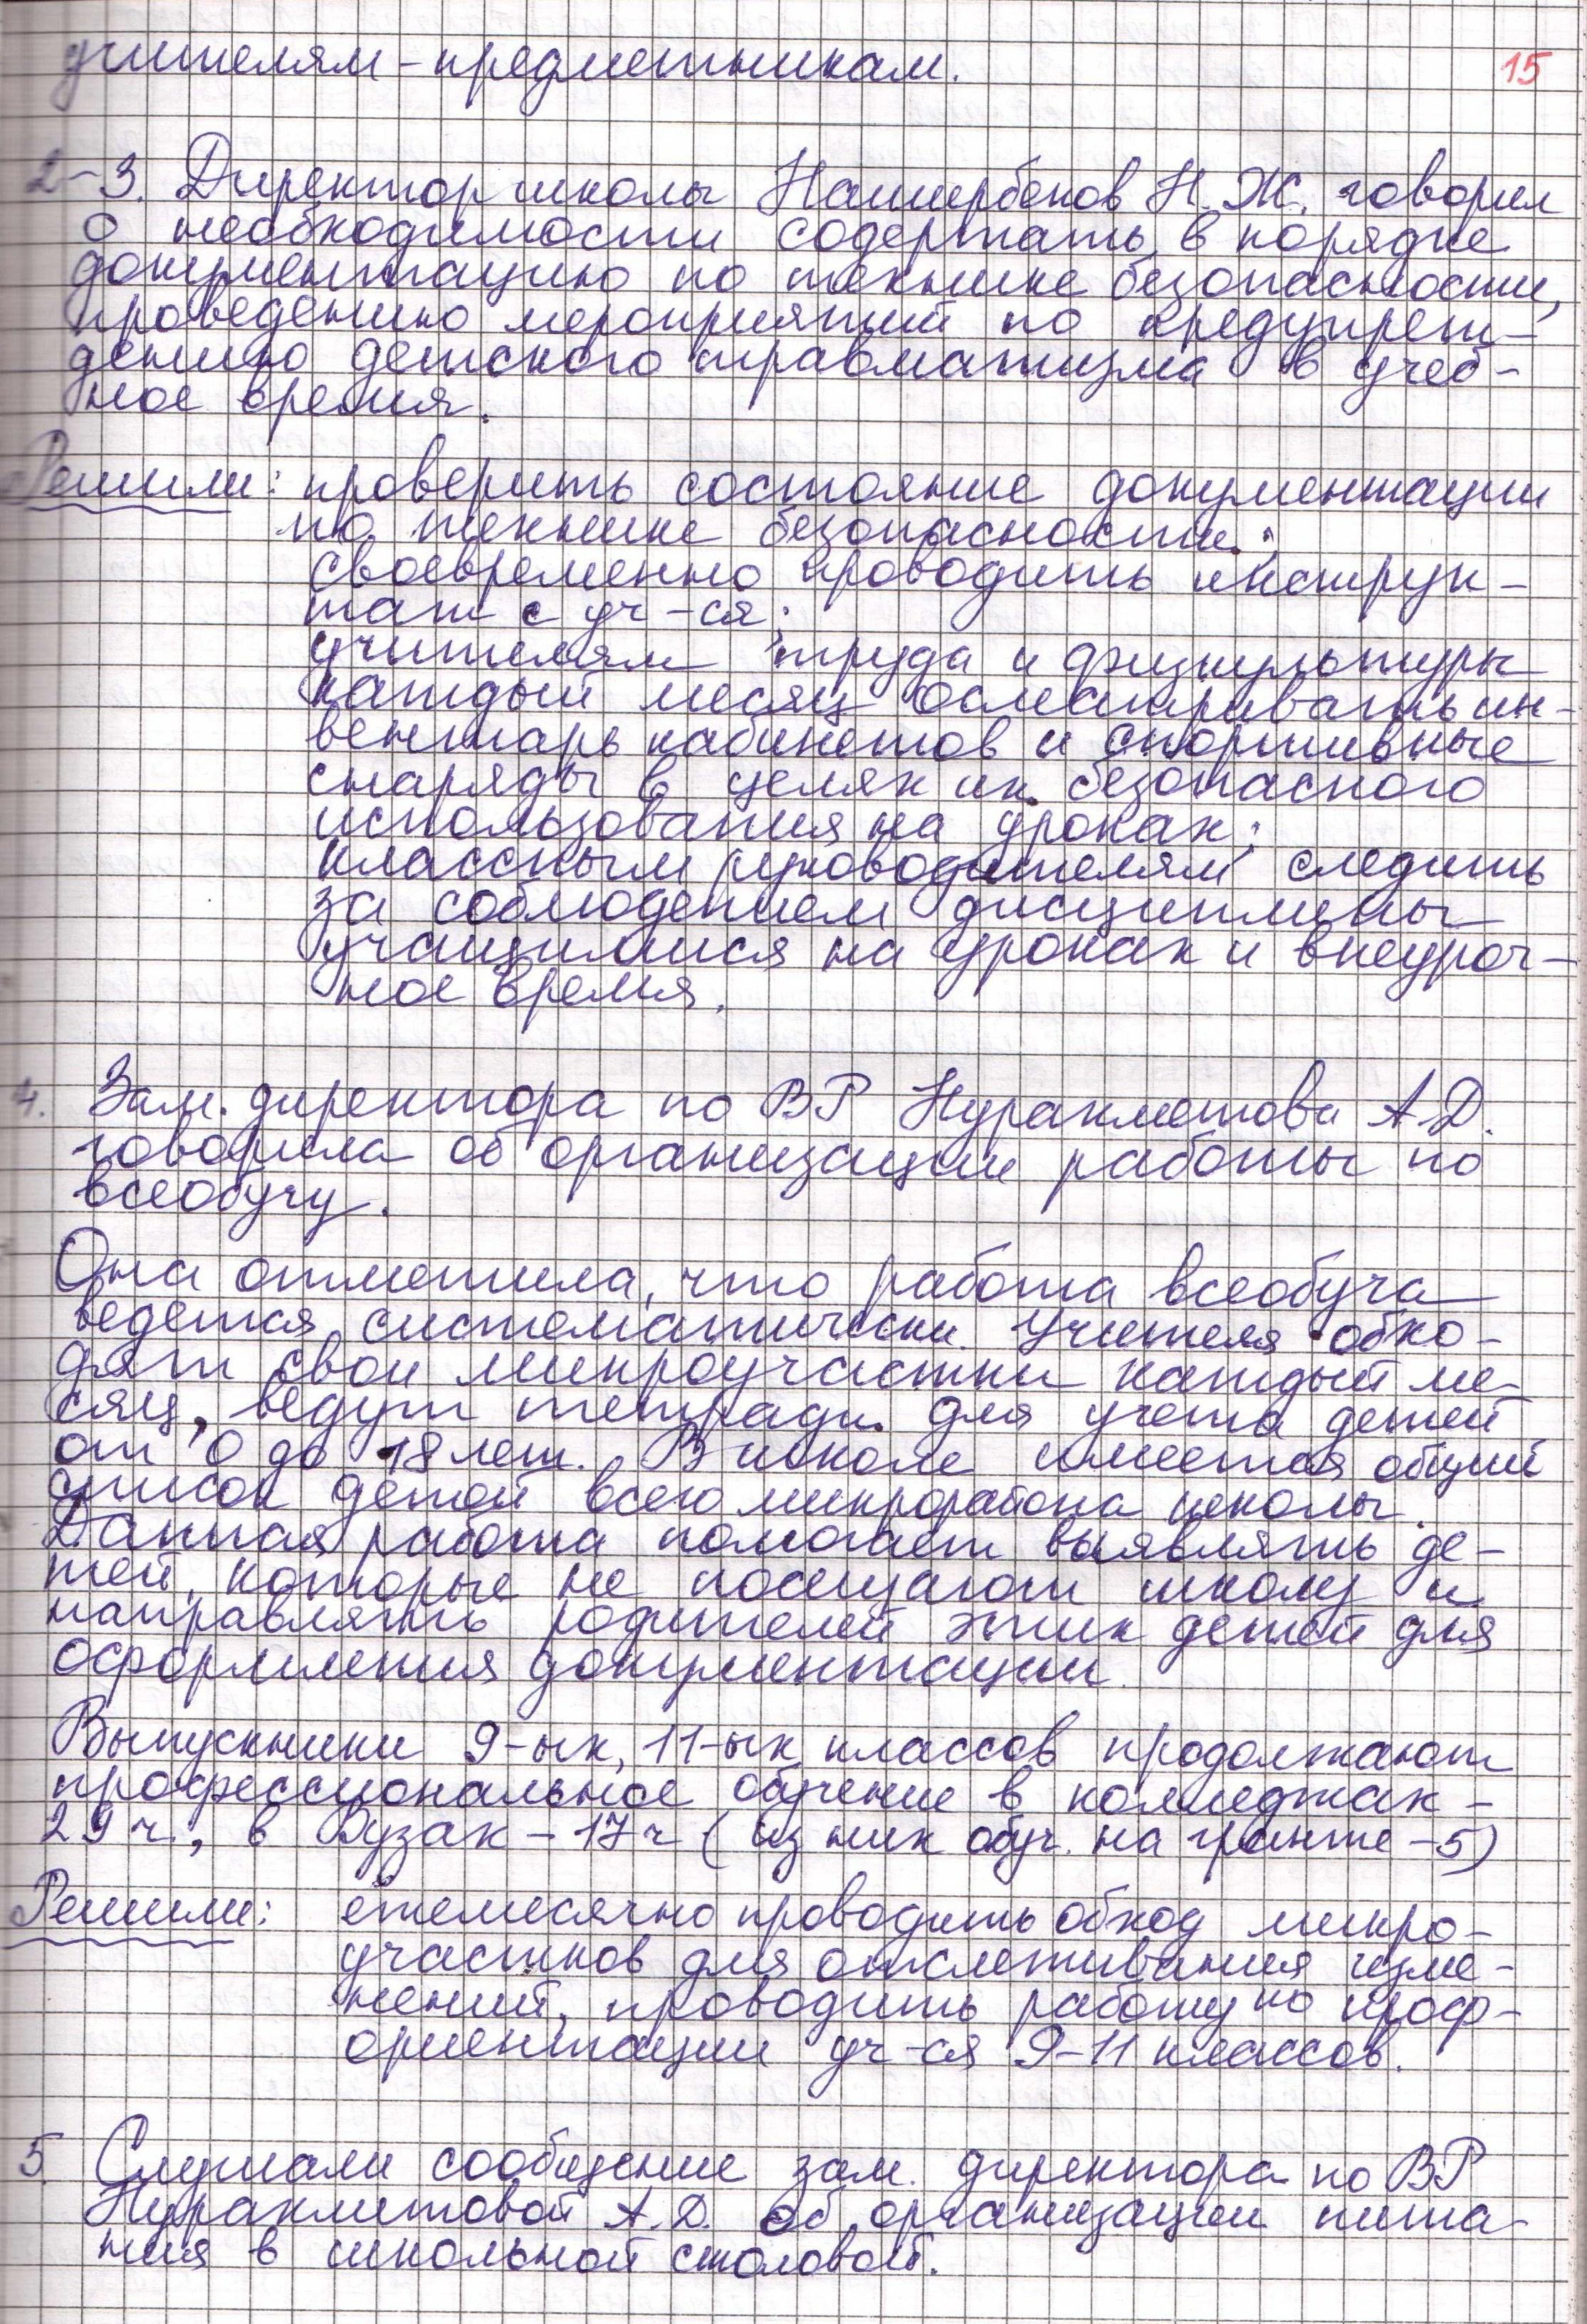 учителям-предметникам.
15
2-3. Директор школы Нашербеков Н.Ж. говорил
о необходимости содержать в порядке
документацию по технике безопасности,
проведению мероприятий по предупреж-
дению детского травматизма в учеб-
ное время.
Решили: проверить состояние документации
по технике безопасности;
своевременно проводить инструк-
таж с уч-ся;
учителям труда и физкультуры
каждый месяц осматривать ин-
вентарь кабинетов и спортивные
снаряды в целях их безопасного
использования на уроках;
классным руководителям следить
за соблюдением дисциплины
учащимися на уроках и внеуроч-
ное время.
4. Зам. директора по ВР Нурахметова А.Д.
говорила об организации работы по
всеобучу.
Она отметила, что работа всеобуча
ведется систематически. Учителя обхо-
дят свои микроучастки каждый ме-
сяц, ведут тетради для учета детей
от 0 до 18 лет. В школе имеется общий
список детей всего микрорайона школы.
Данная работа помогает выявлять де-
тей, которые не посещают школу и
направлять родителей этих детей для
оформления документации.
Выпускники 9-ых, 11-ых классов продолжают
профессиональное обучение в колледжах -
29 ч., в Вузах - 17 ч (из них обуч. на гранте - 5)
Решили: ежемесячно проводить обход микро-
участков для отслеживания изме-
нений, проводить работу по проф-
ориентации уч-ся 9-11 классов.
5. Слушали сообщение зам. директора по ВР
Нурахметовой А.Д. об организации пита-
ния в школьной столовой.